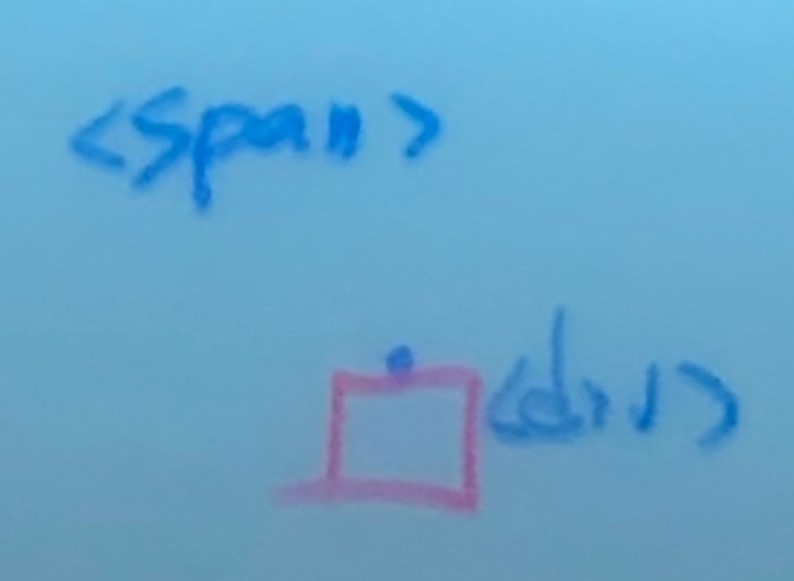 <span>
<div>